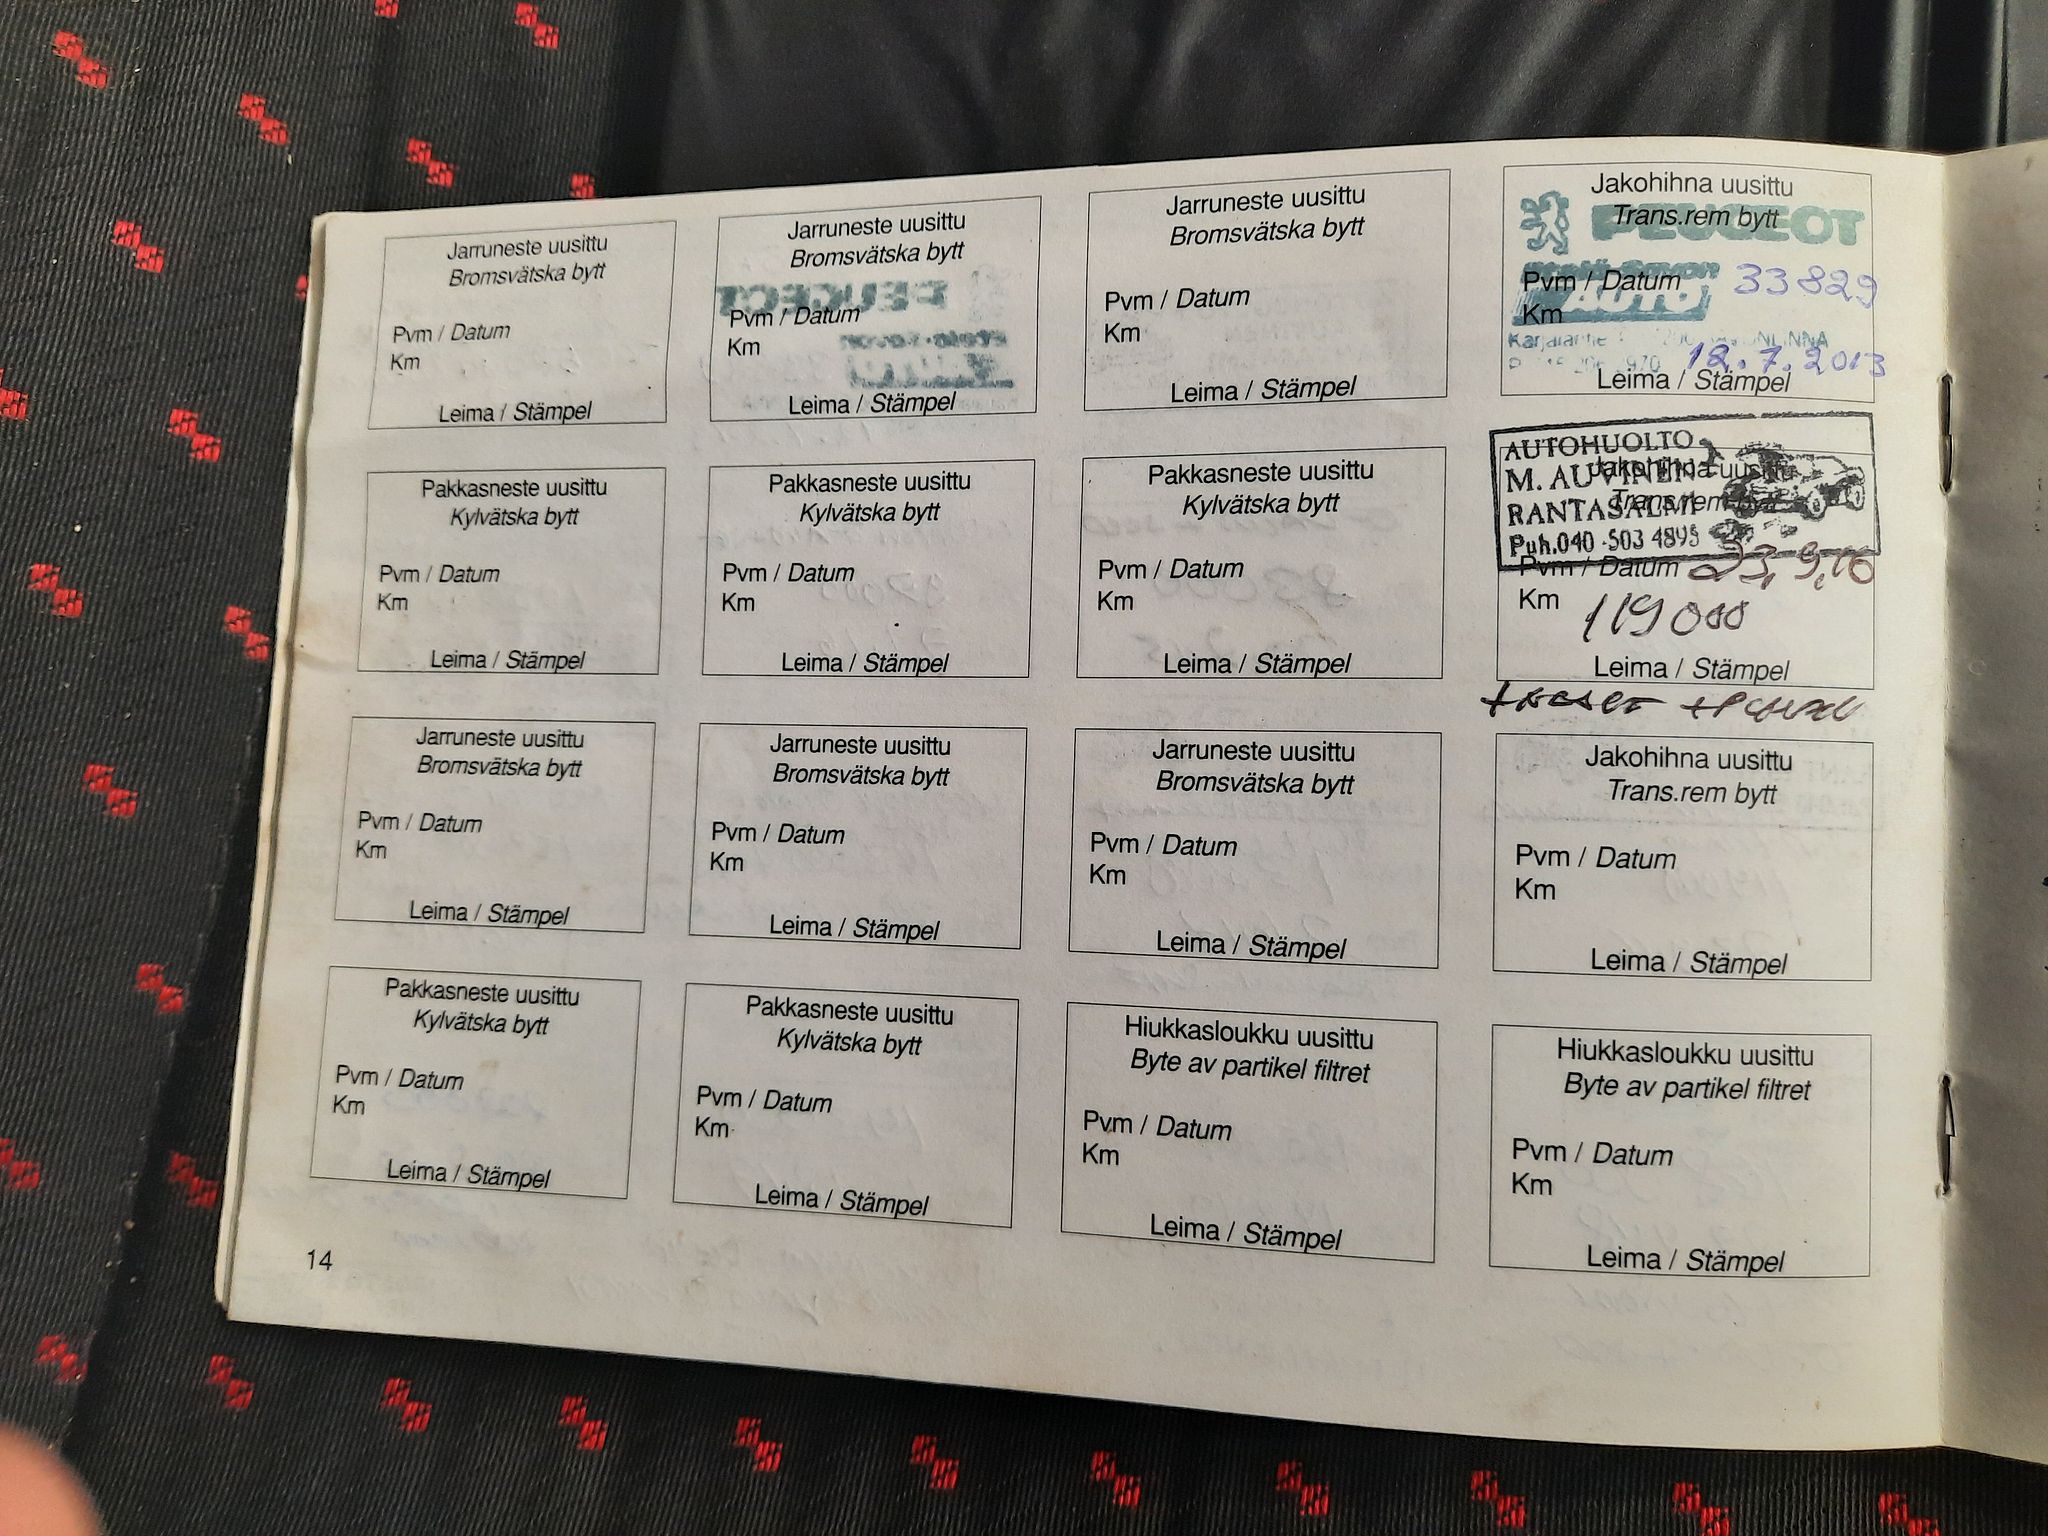 Jarruneste uusittu
Bromsvätska bytt
Pvm / Datum
Km
Leima / Stämpel
Jarruneste uusittu
Bromsvätska bytt
Pvm / Datum
Km
Leima / Stämpel
Jarruneste uusittu
Bromsvätska bytt
Pvm / Datum
Km
Leima / Stämpel
Jakohihna uusittu
Trans.rem bytt
PEUGEOT
Pvm / Datum 33829
AUTO
Km
12.7.2013
Leima / Stämpel
Pakkasneste uusittu
Kylvätska bytt
Pvm / Datum
Km
Leima / Stämpel
Pakkasneste uusittu
Kylvätska bytt
Pvm / Datum
Km
Leima / Stämpel
Pakkasneste uusittu
Kylvätska bytt
Pvm / Datum
Km
Leima / Stämpel
AUTOHUOLTO
Jakohihna uusittu
M. AUVINEN
Trans.rem bytt
RANTASALMI
Puh.040 503 4895
Pvm / Datum 23,9,16
Km 119000
Leima / Stämpel
Jarruneste uusittu
Bromsvätska bytt
Pvm / Datum
Km
Leima / Stämpel
Jarruneste uusittu
Bromsvätska bytt
Pvm / Datum
Km
Leima / Stämpel
Jarruneste uusittu
Bromsvätska bytt
Pvm / Datum
Km
Leima / Stämpel
Jakohihna uusittu
Trans.rem bytt
Pvm / Datum
Km
Leima / Stämpel
Pakkasneste uusittu
Kylvätska bytt
Pvm / Datum
Km
Leima / Stämpel
Pakkasneste uusittu
Kylvätska bytt
Pvm / Datum
Km
Leima / Stämpel
Hiukkasloukku uusittu
Byte av partikel filtret
Pvm / Datum
Km
Leima / Stämpel
Hiukkasloukku uusittu
Byte av partikel filtret
Pvm / Datum
Km
Leima / Stämpel
14